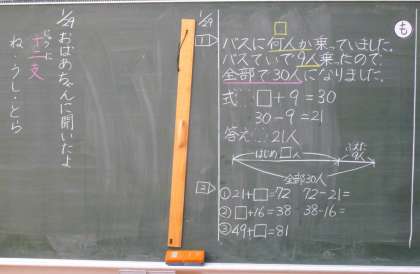 1/29
も
1
バスに何人か乗っていました。
バスていで9人乗ったので、
全部で30人になりました。
式 □+9=30
30-9=21
答え 21人
はじめ□人
ふえた
9人
全部30人
3
①21+□=72 72-21=
②□+16=38 38-16=
③49+□=81
1/29
おばあちゃんに聞いたよ
じゅうにし
十二支
ね・うし・とら